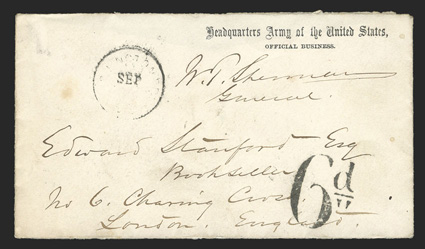 Headquarters Army of the United States,
OFFICIAL BUSINESS.
SEP
W. T. Sherman
General.
Edward Stanford Esq
Bookseller
No 6. Charing Cross.
London. England.
6d